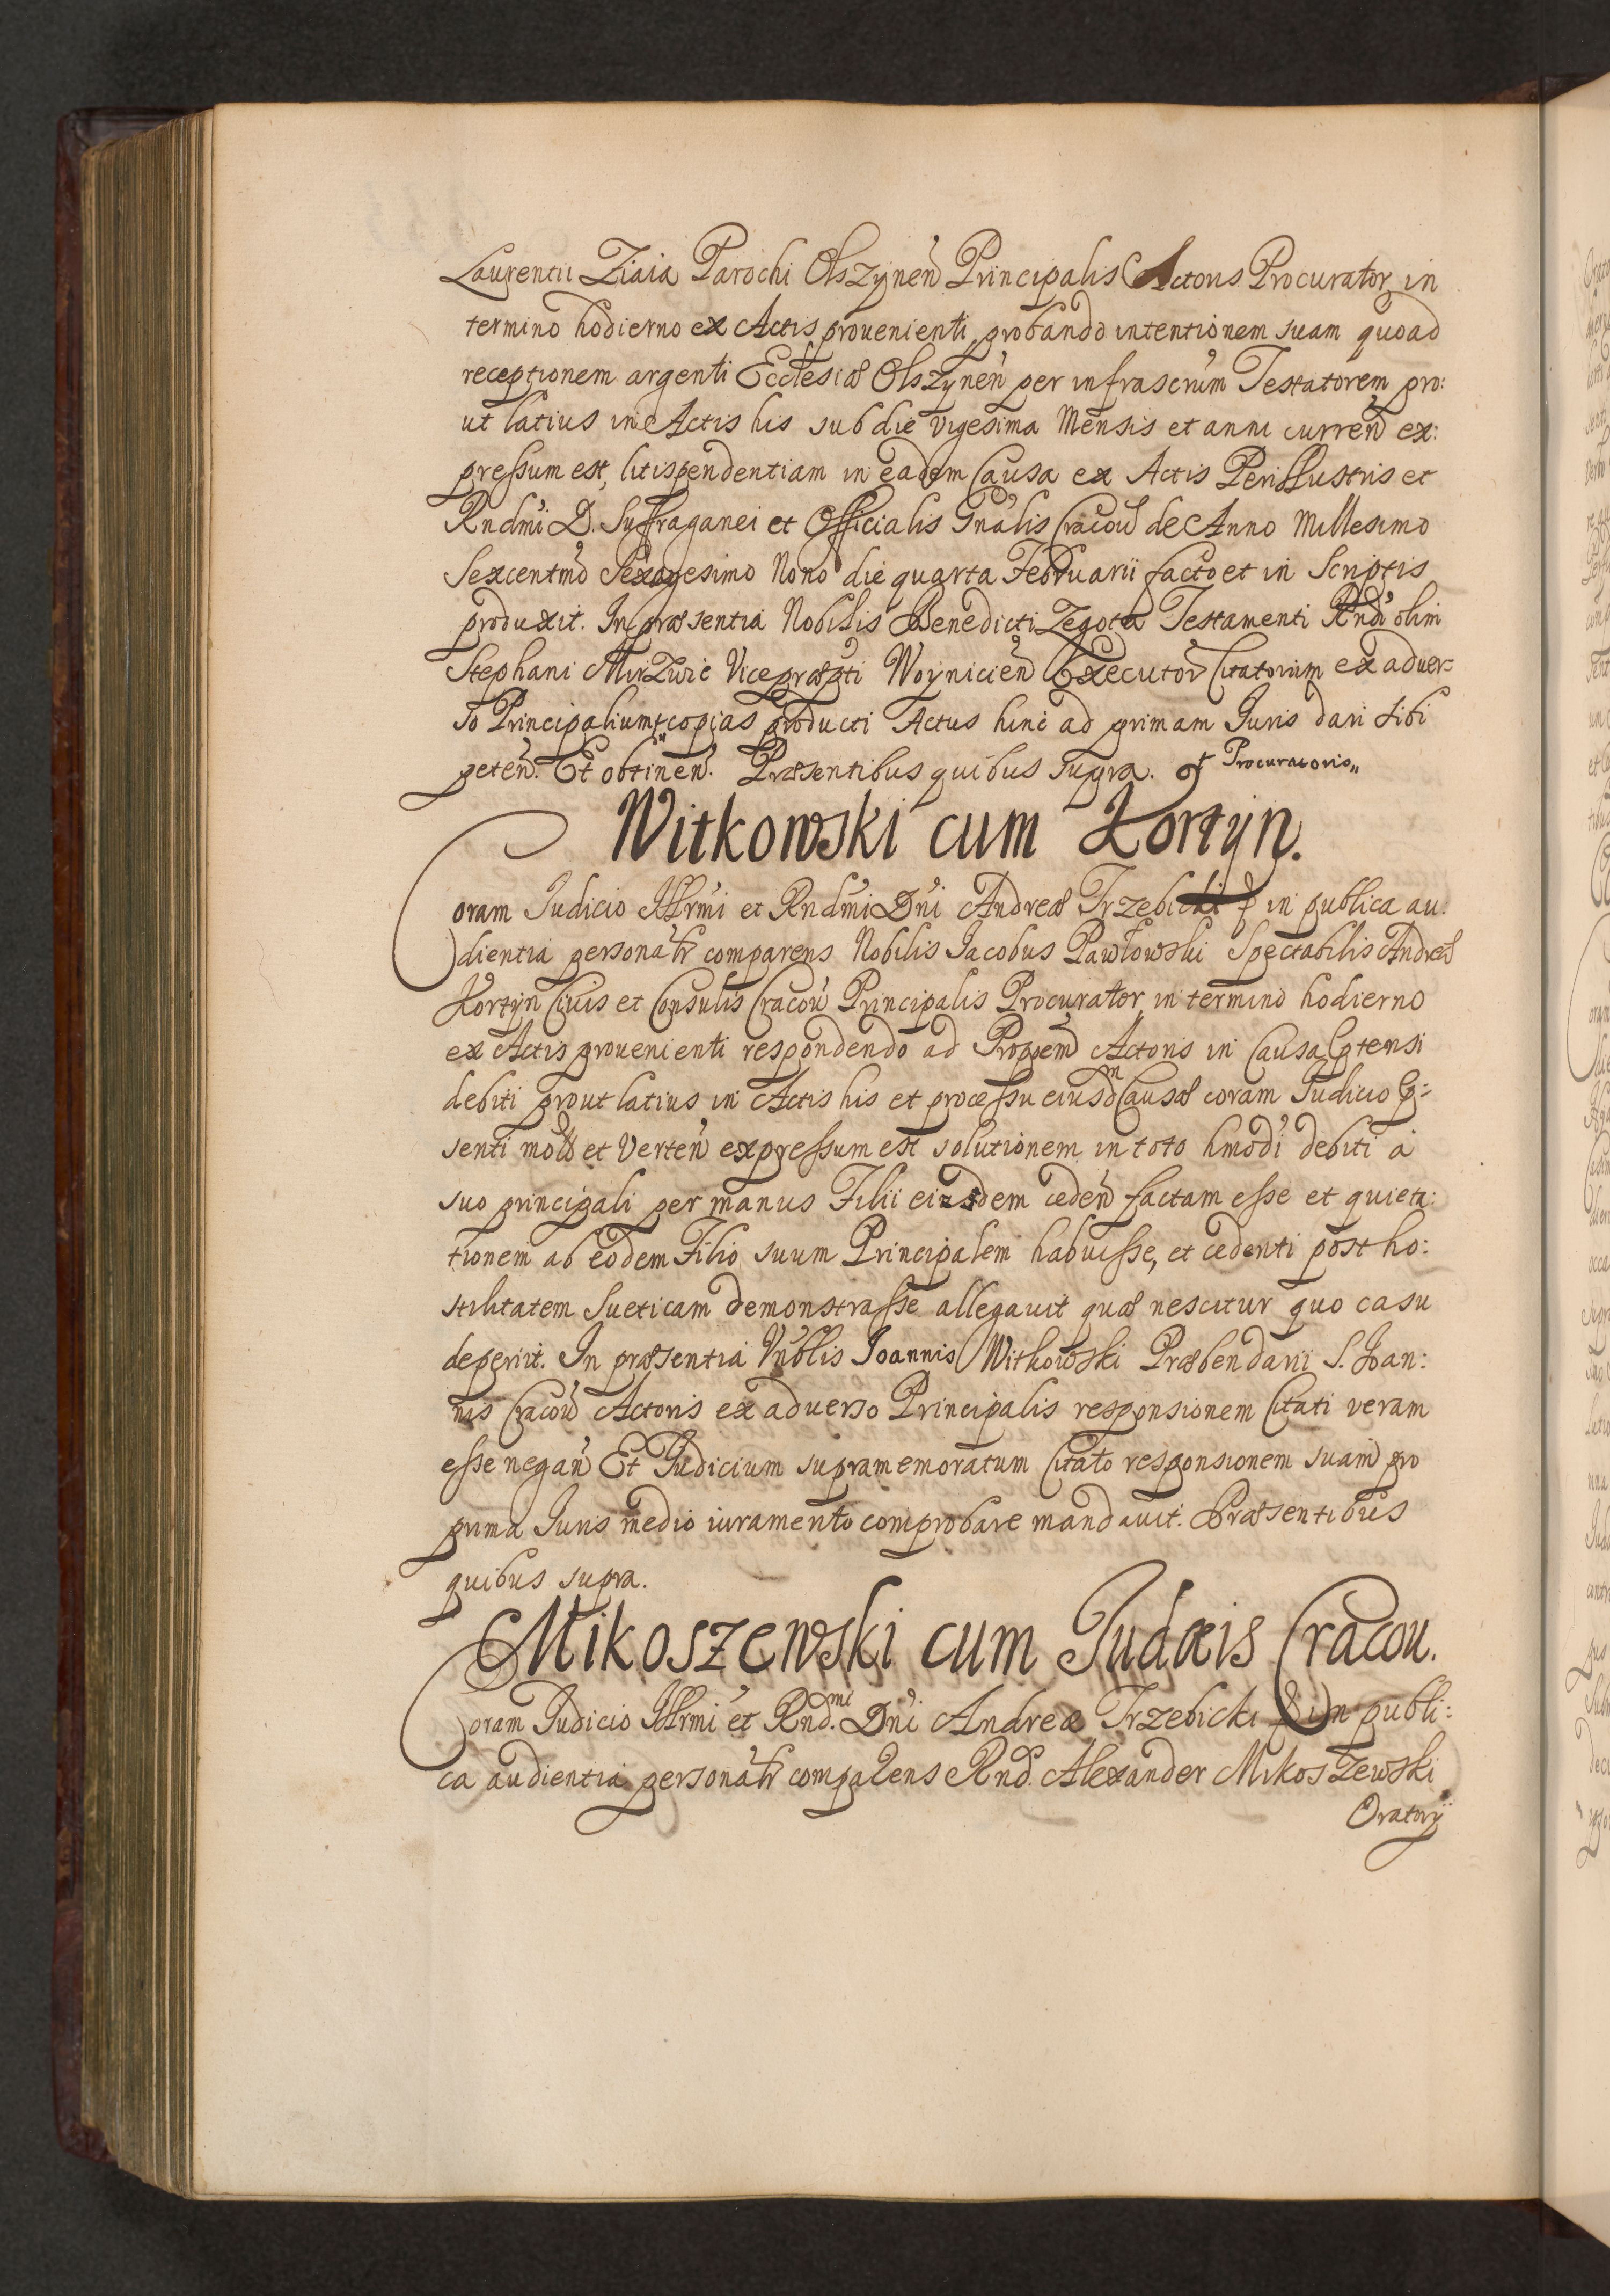 Laurentii Ziaia Parochi Olszynen̄ Principalis Actoris Procurator in
termino hodierno ex Actis prouenienti probando intentionem suam quoad
receptionem argenti Ecclesiæ Olszynen̄ per infrascrūm Testatorem pro:
ut latius in Actis his sub die vigesima Mensis et anni curren̄ ex:
pressum est, litispendentiam in eadem Causa ex Actis Perillustris et
Rndm̄i D. Suffraganei et Officialis Gnālis Cracou̅ de Anno Millesimo
Sexcentm̄o Sexagesimo Nono die quarta Februarii facto et in Scriptis
produxit. In præsentia Nobilis Benedicti Zegota Testamenti Rndi olim
Stephani Mirzwic Vicepræpti Woynicien̄ Executor̄ Citatorum ex aduer:
so Principalium + copias producti Actus hinc ad primam Juris dari sibi
peten̄. Et obtinen̄. Præsentibus quibus supra. + Procuratoris„
Witkowski cum Kortyn.
Coram Judicio Illrm̄i et Rndm̄i Dn̄i Andreæ Trzebicki & in publica au:
dientia personalr̄ comparens Nobilis Jacobus Pawłowski Spectabilis Andreæ
Kortyn Ciuis et Consulis Cracou̅ Principalis Procurator in termino hodierno
ex Actis prouenienti respondendo ad Propoem̄ Actoris in Causa prætensi
debiti prout latius in Actis his et processu eiusdm Causæ coram Judicio præ:
senti mot̄ et Verten̄ expressum est solutionem in toto hmōdi debiti à
suo principali per manus Filii eiusdem ceden̄ factam esse et quieta:
tionem ab eodem Filio suum Principalem habuisse, et cedenti post ho:
stilitatem Sueticam demonstrasse allegauit quæ nescitur quo casu
deperiit. In præsentia Vnblis Joannis Witkowski Præbendarii S. Joan:
nis Cracou̅ Actoris ex aduerso Principalis responsionem Citati veram
esse negan̄ Et Judicium supramemoratum Citato responsionem suam pro
prima Juris medio iuramento comprobare mandauit. Præsentibus
quibus supra.
Mikoszewski cum Judæis Cracou.
Coram Judicio Illrm̄i et Rnd.mi Dn̄i Andreæ Trzebicki & in publi:
ca audientia personalr̄ comparens Rnd. Alexander Mikoszewski
Oratorij